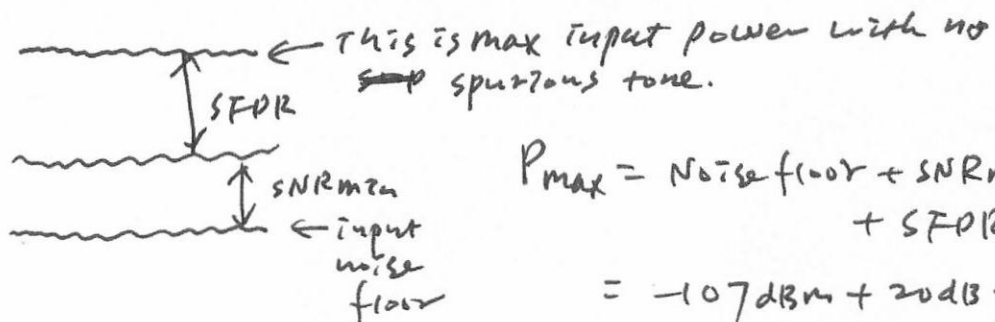 ← This is max input power with no
spurious tone.
SFDR
SNRmin
← input
noise
floor
Pmax = Noise floor + SNR
+ SFDR
= -107dBm + 20dB